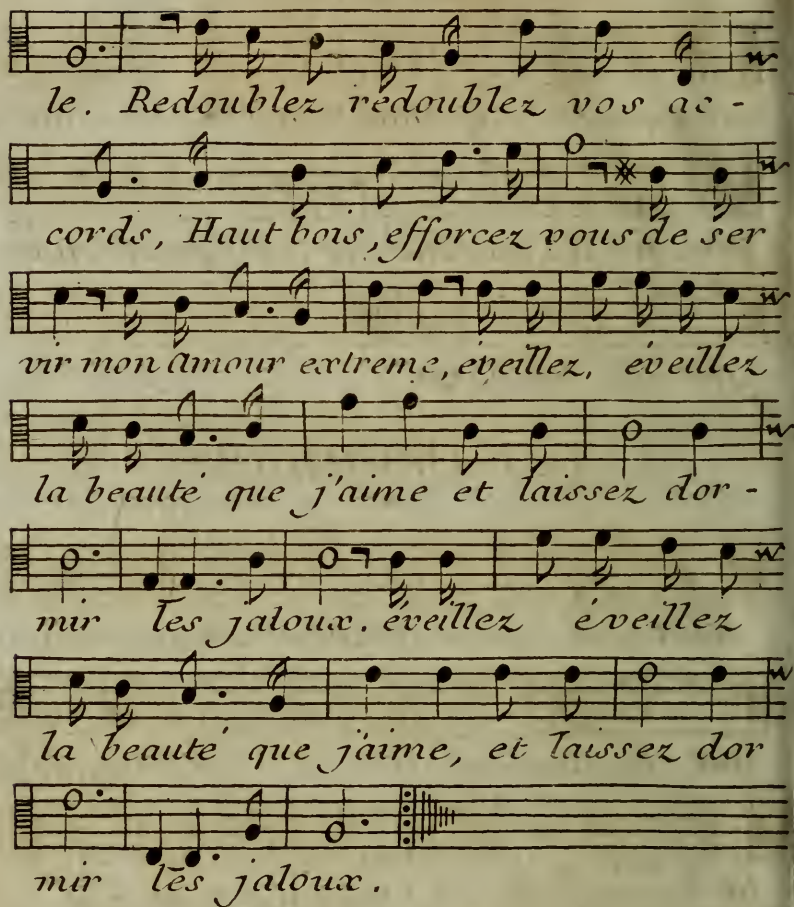 le. Redoublez redoublez vos ac -
cords, Haut bois, efforcez vous de ser
vir mon amour extreme, éveillez, éveillez
la beauté que j'aime et laissez dor -
mir les jaloux. éveillez éveillez
la beauté que j'aime, et laissez dor
mir les jaloux.